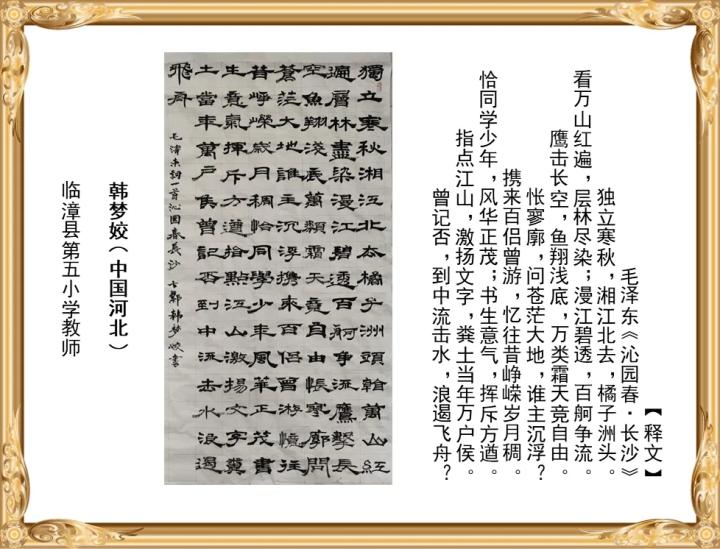 【释文】
毛泽东《沁园春·长沙》
独立寒秋，湘江北去，橘子洲头。
看万山红遍，层林尽染；漫江碧透，百舸争流。
鹰击长空，鱼翔浅底，万类霜天竞自由。
怅寥廓，问苍茫大地，谁主沉浮？
携来百侣曾游，忆往昔峥嵘岁月稠。
恰同学少年，风华正茂；书生意气，挥斥方遒。
指点江山，激扬文字，粪土当年万户侯。
曾记否，到中流击水，浪遏飞舟？
獨立寒秋湘江北去橘子洲頭看萬山紅
遍層林盡染漫江碧透百舸争流鷹擊長
空魚翔淺底萬類霜天竟自由悵寥廓問
蒼茫大地誰主沉浮携來百侣曾游憶往
昔崢嶸歲月稠恰同學少年風華正茂書
生意氣揮斥方遒指點江山激揚文字糞
土當年萬户侯曾記否到中流击水浪遏
飛舟
毛澤東詞一首沁园春長沙 古鄴韩梦姣書
韩梦姣（中国河北）
临漳县第五小学教师